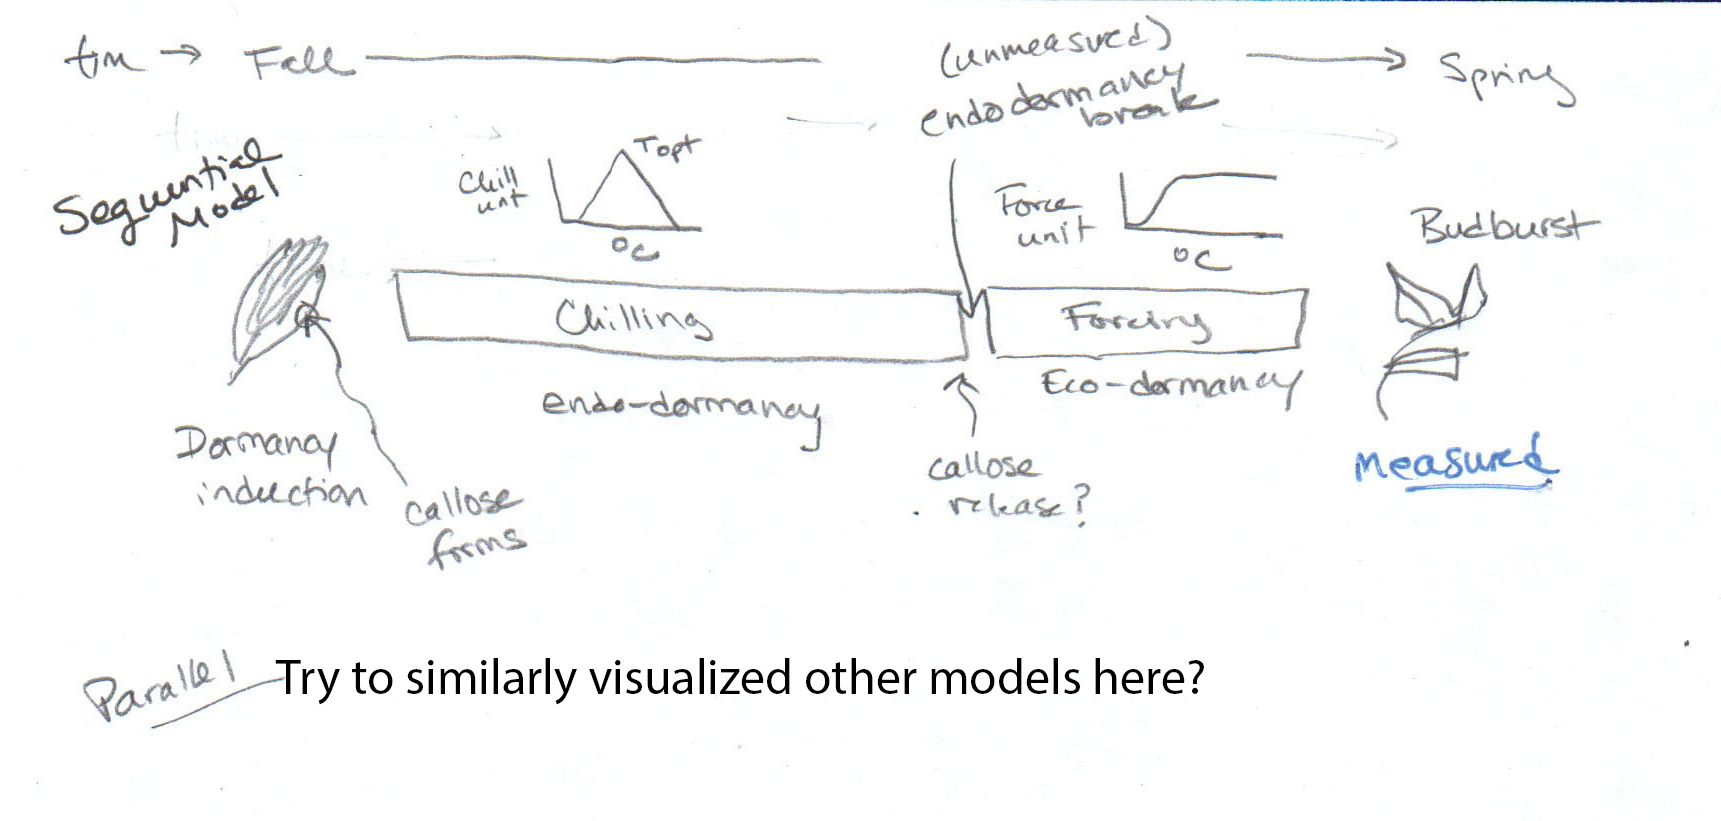 time → Fall
(unmeasured)
endodormancy
break
Spring
time
Sequential
Model
Chill
unit
Topt
°C
Force
unit
°C
Budburst
Chilling
Forcing
endo-dormancy
Eco-dormancy
Dormancy
induction
callose
forms
callose
release?
measured
Parallel Try to similarly visualized other models here?